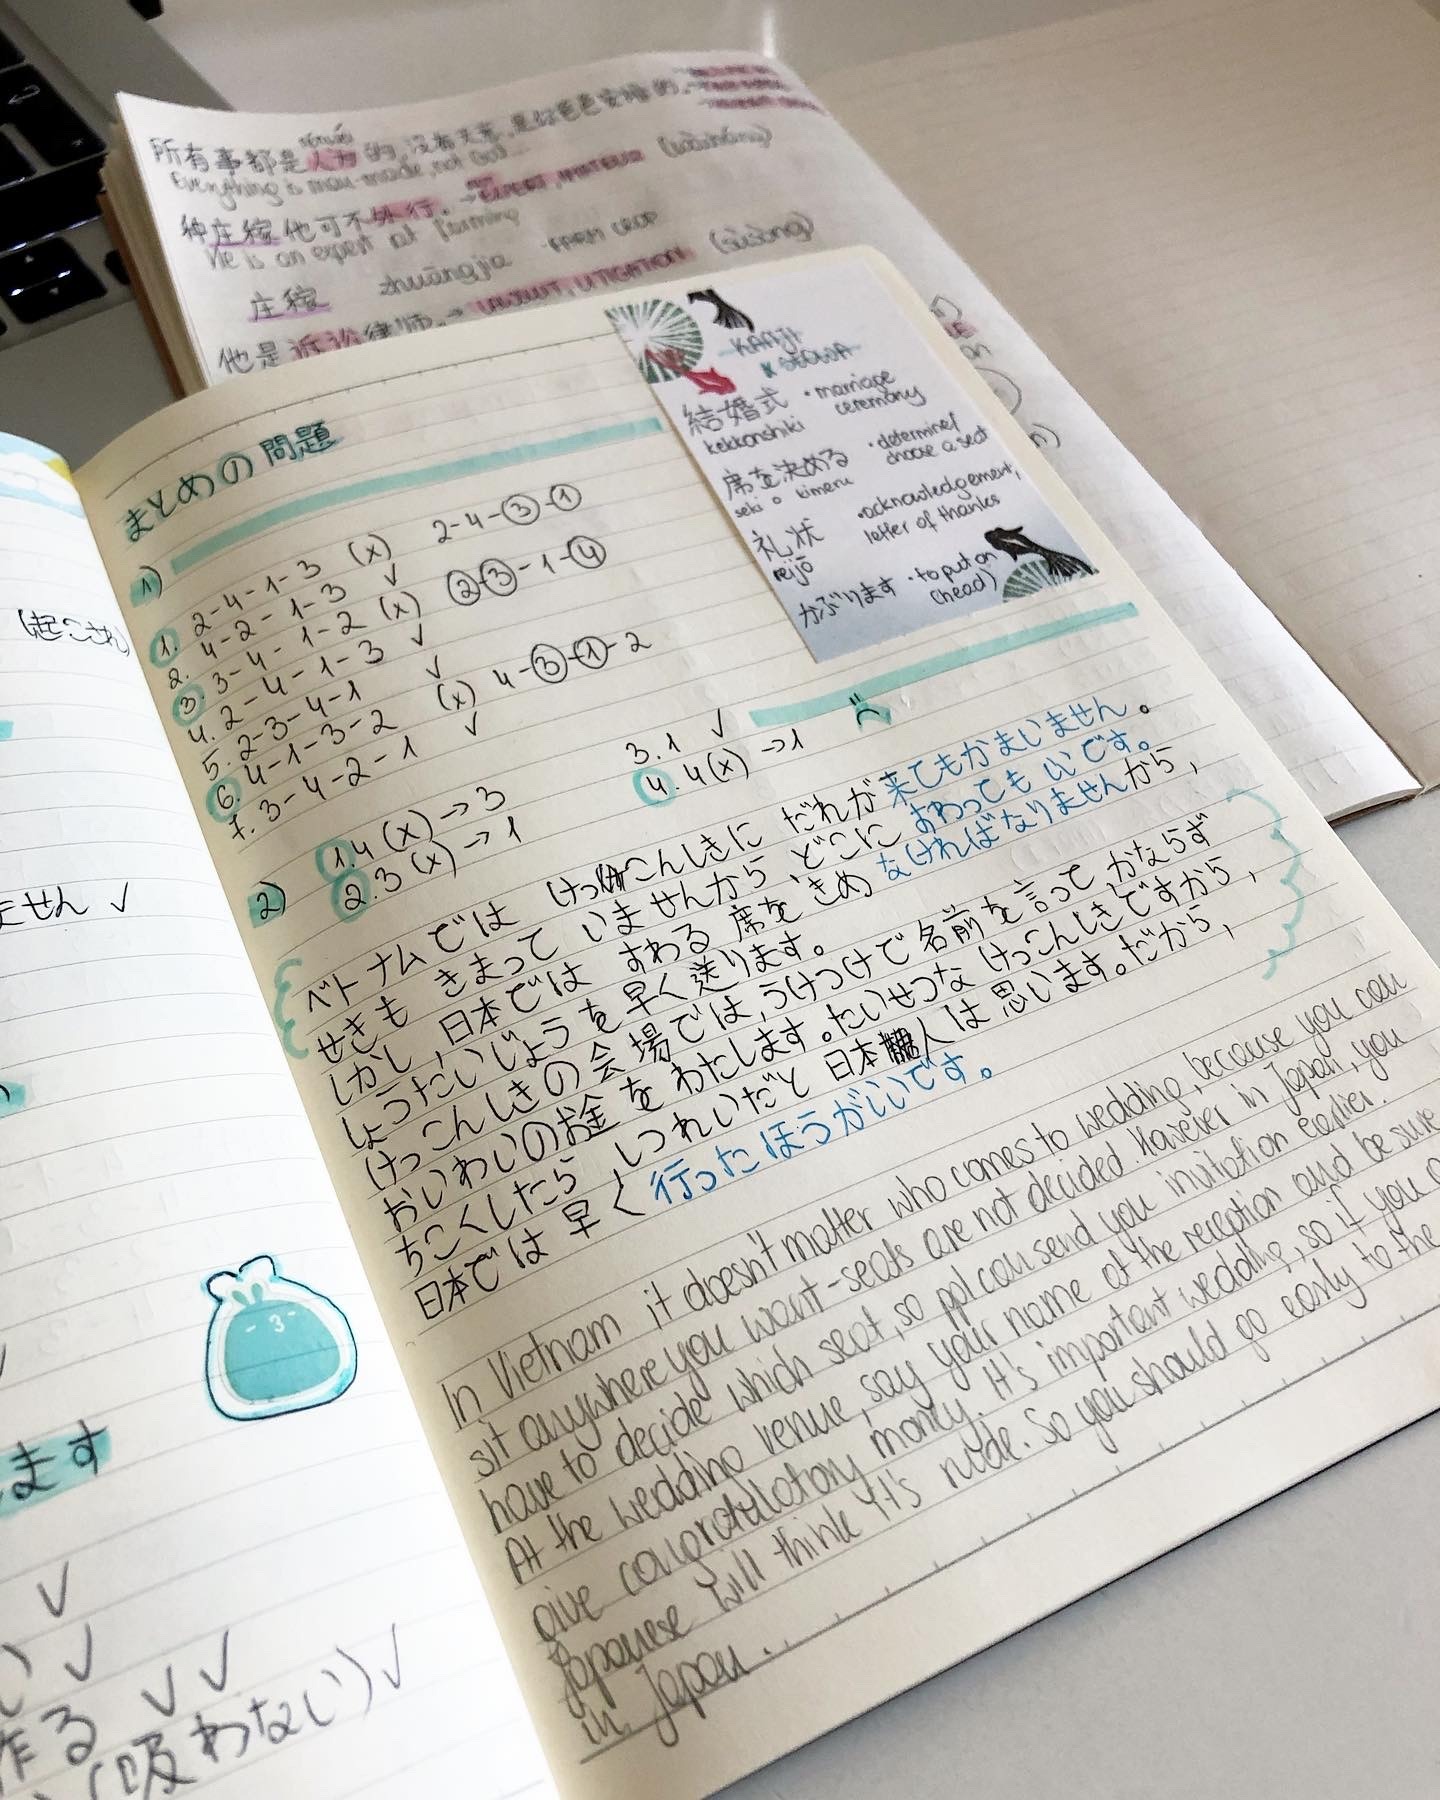 所有事都是人为的,没有天意,是你爸爸安排的.
Everything is man-made, not God
种庄稼他可不外行.→EXPERT, AMATEUR
He is an expert at farming
庄稼 zhuāngjia FARM CROP
(sùsòng)
他是诉讼律师.→LAWSUIT, LITIGATION
KANJI
結婚式 ・marriage ceremony
kekkonshiki
席を決める ・determine/ choose a seat
seki o kimeru
礼状 ・acknowledgement, letter of thanks
reijō
かぶります ・to put on (head)
まとめの問題
1)
1. 2-4-1-3 (x) 2-4-③-①
2. 4-2-1-3 ✓
3. 3-4-1-2 (x) ②-③-1-④
4. 2-4-1-3 ✓
5. 2-3-4-1 ✓
6. 4-1-3-2 (x) 4-③-①-2
7. 3-4-2-1 ✓
2)
1. 4 (x) → 3
2. 3 (x) → 1
3. 1 ✓
4. 4 (x) → 1
ベトナムでは けっこんしきに だれが来てもかまいません。
せきも きまって いませんから どこに すわっても いいです。
しかし,日本では すわる 席を きめ なければなりませんから,
しょうたいじょうを早く送ります。
けっこんしきの会場では,うけつけで名前を言って,かならず
おいわいのお金 をわたします。たいせつな けっこんしきですから,
ちこくしたら しつれいだと 日本人は思います。だから,
日本では早く行ったほうがいいです。
In Vietnam it doesn't matter who comes to wedding, because you can
sit anywhere you want - seats are not decided. However in Japan, you
have to decide which seat, so ppl can send you invitation earlier.
At the wedding venue, say your name at the reception and be sure
give congratulatory money. It's important wedding, so if you
Japanese will think it's rude. So you should go early to the
in Japan.
(起こされ)
ません ✓
ます
✓
✓
作る ✓✓
(吸わない) ✓